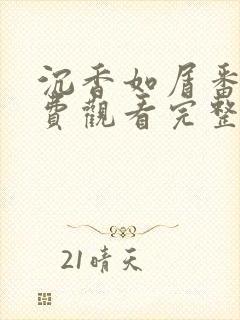 沉香如屑番
費觀看完整
21晴天